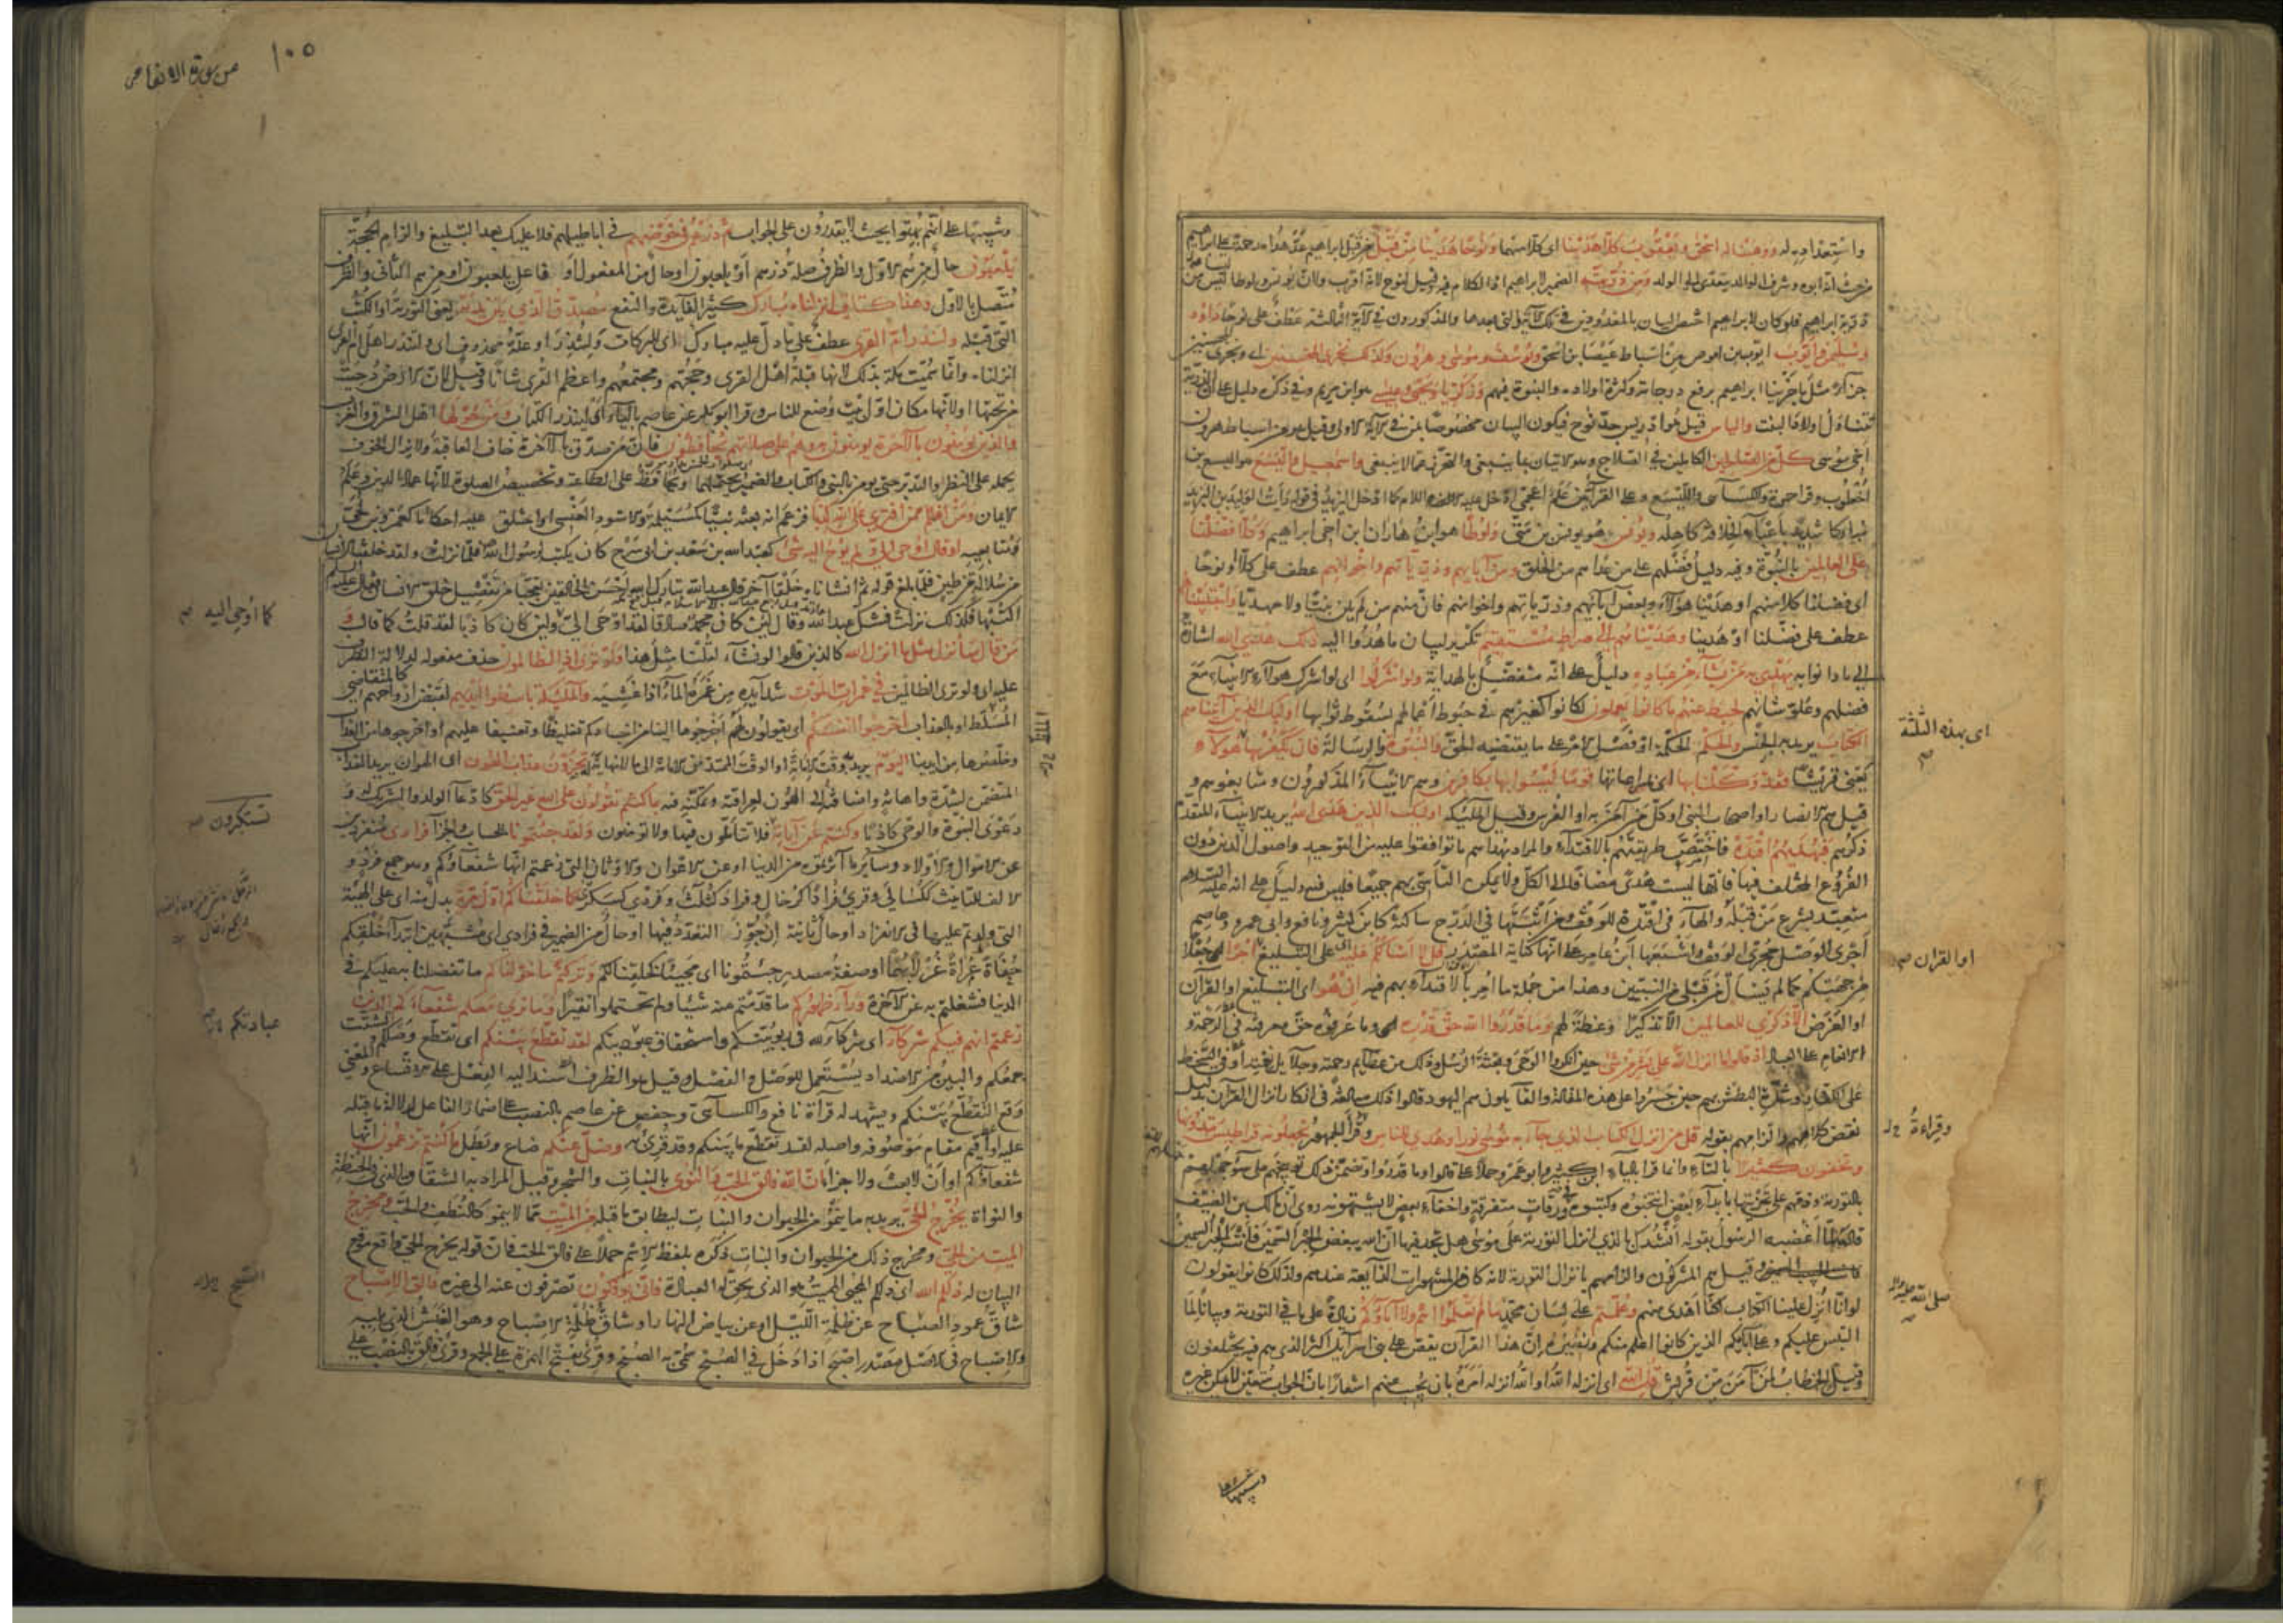 واستعداد به له ووهبنا له اسحق ويعقوب كلا هدينا اى كلا منهما ونوحا هدينا من قبل من قبل ابراهيم عد هداه نعمة على ابراهيم
من حيث انه ابوه وشرف الوالد يتعدى الى الولد ومن ذريته الضمير لابراهيم اذ الكلام فيه وقيل لنوح لانه اقرب ولان يونس ولوطا ليس من
ذرية ابراهيم فلو كان لابراهيم اختص البيان بالمعدودين فى تلك الآية والتى بعدها والمذكورون فى الآية الثالثة عطف على نوحا داود
وسليمن وايوب ايوب بن اموص من اسباط عيص بن اسحق ويوسف وموسى وهرون وكذلك نجزى المحسنين اى ونجزى المحسنين
جزاء مثل ما جزينا ابراهيم برفع درجاته وكثرة اولاده والنبوة فيهم وزكريا ويحيى وعيسى هو ابن مريم وفى ذكره دليل على ان الذرية
تتناول اولاد البنت والياس قيل هو ادريس جد نوح فيكون البيان مخصوصا بمن فى الآية الاولى وقيل هو من اسباط هرون
اخى موسى كل من الصالحين الكاملين فى الصلاح وهو الاتيان بما ينبغى والتحرز عما لا ينبغى واسمعيل واليسع هو اليسع بن
اخطوب وقرا حمزة والكسآئى والليسع وعلى القراءتين علم اعجمى ادخل عليه اللام كما ادخل اليزيد فى قوله رأيت الوليد بن اليزيد
مباركا شديدا باعباء الخلافة كاهله ويونس هو يونس بن متى ولوطا هو ابن هاران بن اخى ابراهيم وكلا فضلنا
على العالمين بالنبوة وفيه دليل فضلهم على من عداهم من الخلق ومن آبائهم وذرياتهم واخوانهم عطف على كلا او نوحا
اى فضلنا كلا منهم او هدينا هؤلاء وبعض آبائهم وذرياتهم واخوانهم فان منهم من لم يكن نبيا ولا مهديا واجتبيناهم
عطف على فضلنا او هدينا وهديناهم الى صراط مستقيم تكرير لبيان ما هدوا اليه ذلك هدى الله اشارة
الى ما دانوا به يهدى به من يشاء من عباده دليل على انه متفضل بالهداية ولو اشركوا اى لو اشرك هؤلاء الانبياء مع
فضلهم وعلو شانهم لحبط عنهم ما كانوا يعملون لكانوا كغيرهم فى حبوط اعمالهم بسقوط ثوابها اولئك الذين آتيناهم
الكتاب يريد به الجنس والحكم الحكمة او فصل الامر على ما يقتضيه الحق والنبوة والرسالة فان يكفر بها هولاء
يعنى قريشا فقد وكلنا بها اى بمراعاتها قوما ليسوا بها بكافرين وهم الانبياء المذكورون ومتابعوهم و
قيل هم الانصار او اصحاب النبى او كل من آمن به او الفرس وقيل الملئكة اولئك الذين هدى الله يريد الانبياء المتقدم
ذكرهم فبهديهم اقتده فاختص طريقتهم بالاقتداء والمراد بهداهم ما توافقوا عليه من التوحيد واصول الدين دون
الفروع المختلف فيها فانها ليست هدى مضافا الى الكل ولا يمكن التأسى بهم جميعا فليس فيه دليل على انه عليه السلام
متعبد بشرع من قبله والهاء فى اقتده للوقف ومن اثبتها فى الدرج ساكنة كابن كثير ونافع وابى عمرو وعاصم
اجرى الوصل مجرى الوقف واشبعها ابن عامر على انها كناية المصدر قل لا اسألكم عليه اى على التبليغ اجرا اى جعلا
من جهتكم كما لم يسأل من قبلى من النبيين وهذا من جملة ما امر بالاقتداء بهم فيه ان هو اى التبليغ او القرآن
او الغرض الا ذكرى للعالمين الا تذكيرا وعظة لهم وما قدروا الله حق قدره اى وما عرفوه حق معرفته فى الرحمة و
الانعام على العباد اذ قالوا ما انزل الله على بشر من شئ حين انكروا الوحى وبعثة الرسل وذلك من عظايم رحمته وجلايل نعمته او فى السخط
على الكفار وشدة البطش بهم حين جسروا على هذه المقالة والقايلون هم اليهود قالوا ذلك مبالغة فى انكار انزال القرآن بدليل
نقض كلامهم والزامهم بقوله قل من انزل الكتاب الذى جآء به موسى نورا وهدى للناس وقراءة الجمهور تجعلونه قراطيس تبدونها
وتخفون كثيرا بالتاء وانما قرا بالياء ابن كثير وابو عمرو حملا على قالوا وما قدروا وتضمن ذلك توبيخهم على سوء جهلهم
بالتورية وذمهم على تجزيتها بابداء بعض انتخبوه وكتبوه فى ورقات متفرقة واخفاء بعض لا يشتهونه روى ان مالك بن الصيف
قاله لما اغضبه الرسول بقوله انشدك بالذى انزل التورية على موسى هل تجد فيها ان الله يبغض الحبر السمين فانت الحبر السمين
وقيل هم المشركون والزامهم بانزال التورية لانه كان من المشهورات الذايعة عندهم ولذلك كانوا يقولون
لو انا انزل علينا الكتاب لكنا اهدى منهم وعلمتم على لسان محمد ما لم تعلموا انتم ولا آباؤكم زيادة على ما فى التورية وبيانا لما
التبس عليكم وعلى آبائكم الذين كانوا اعلم منكم ونظيره ان هذا القرآن يقص على بنى اسرآئيل اكثر الذى هم فيه يختلفون
وقيل الخطاب لمن آمن من قريش قل الله اى انزله الله او الله انزله امره بان يجيب عنهم اشعارا بان الجواب متعين لا يمكن غيره
اى بهذه الثلثة
او القران
وقراءة
صلى الله عليه
وتنبيها على
١٠٥
من سورة الانعام
وتنبيها على انهم بهتوا بحيث لا يقدرون على الجواب ثم ذرهم فى خوضهم فى اباطيلهم فلا عليك بعد التبليغ والزام الحجة
يلعبون حال من هم الاول والظرف صلة ذرهم او يلعبون او حال من المفعول او فاعل يلعبون او من هم الثانى والظرف
متصل بالاول وهذا كتاب انزلناه مبارك كثير الفايدة والنفع مصدق الذى بين يديه يعنى التورية او الكتب
التى قبله ولتنذر ام القرى عطف على ما دل عليه مبارك اى للبركات ولتنذر او علة محذوف اى ولتنذر اهل ام القرى
انزلناه وانما سميت مكة بذلك لانها قبلة اهل القرى وحجتهم ومجتمعهم واعظم القرى شانا وقيل لان الارض دحيت
من تحتها او لانها مكان اول بيت وضع للناس وقرا ابو بكر عن عاصم بالياء اى لينذر الكتاب ومن حولها اهل الشرق والغرب
والذين يومنون بالآخرة يومنون به وهم على صلاتهم يحافظون فان من صدق بالآخرة خاف العاقبة ولا يزال الخوف
يحمله على النظر والتدبر حتى يومن بالنبى والكتاب والضمير يحتملهما ويحافظ على الطاعة وتخصيص الصلوة لانها عماد الدين وعلم
الايمان ومن اظلم ممن افترى على الله كذبا فزعم انه بعثه نبيا كمسيلمة والاسود العنسى او اختلق عليه احكاما كعمرو بن لحى
ومتابعيه او قال اوحى الى ولم يوح اليه شئ كعبد الله بن سعد بن ابى سرح كان يكتب لرسول الله فلما نزلت ولقد خلقنا الانسان
من سلالة من طين فلما بلغ قوله ثم انشأناه خلقا آخر قال عبد الله تبارك الله احسن الخالقين تعجبا من تفصيل خلق الانسان فقال عليه السلم
اكتبها فكذلك نزلت فشك عبد الله وقال لئن كان محمد صادقا لقد اوحى الى ولئن كان كاذبا لقد قلت كما قال و
من قال سأنزل مثل ما انزل الله كالذين قالوا لو نشاء لقلنا مثل هذا ولو ترى اذ الظالمون حذف مفعوله لدلالة الظرف
عليه اى ولو ترى الظالمين فى غمرات الموت شدآيده من غمره الماء اذا غشيه والملئكة باسطوا ايديهم لقبض ارواحهم كالمتقاضى
المسلط او بالعذاب اخرجوا انفسكم اى يقولون لهم اخرجوها الينا من اجسادكم تغليظا وتعنيفا عليهم او اخرجوها من العذاب
وخلصوها من ايدينا اليوم يريد وقت الاماتة او الوقت الممتد من الاماتة الى ما لا نهاية له تجزون عذاب الهون اى الهوان يريد العذاب
المتضمن لشدة واهانة واضافته الى الهون لعراقته وتمكنه فيه بما كنتم تقولون على الله غير الحق كادعآء الولد والشريك له و
دعوى النبوة والوحى كاذبا وكنتم عن آياته فلا تتأملون فيها ولا تومنون ولقد جئتمونا للحساب والجزاء فرادى منفردين
عن الاموال والاولاد وسآير ما آثرتموه من الدنيا او عن الاعوان والاوثان التى زعمتم انها شفعآؤكم وهو جمع فرد و
الالف للتانيث ككسالى وقرئ فرادا كرخال وفراد كثلاث وفردى كسكرى كما خلقناكم اول مرة بدل منه اى على الهيئة
التى ولدتم عليها فى الانفراد او حال ثانية ان جوز التعدد فيها او حال من الضمير فى فرادى اى مشبهين ابتدآء خلقكم
حفاة عراة غرلا بهما او صفة مصدر جئتمونا اى مجيئا كخلقنا لكم وتركتم ما خولناكم ما تفضلنا به عليكم فى
الدنيا فشغلتم به عن الآخرة وراء ظهوركم ما قدمتم منه شيئا ولم تحتملوا نقيرا وما نرى معكم شفعاءكم الذين
زعمتم انهم فيكم شركاء اى شركاء لله فى ربوبيتكم واستحقاق عبوديتكم لقد تقطع بينكم اى تقطع وصلكم وتشتت
جمعكم والبين من الاضداد يستعمل للوصل والفصل وقيل هو الظرف اسند اليه الفعل على الاتساع والمعنى
وقع التقطع بينكم ويشهد له قرآءة نافع والكسائى وحفص عن عاصم بالنصب على اضمار الفاعل لدلالة ما قبله
عليه او اقيم مقام موصوفه واصله لقد تقطع ما بينكم وقد قرئ به وضل عنكم ضاع وبطل ما كنتم تزعمون انها
شفعآؤكم او ان لا بعث ولا جزاء ان الله فالق الحب والنوى بالنبات والشجر وقيل المراد به الشقاق الذى فى الحنطة
والنواة يخرج الحى يريد به ما ينمو من الحيوان والنبات ليطابق ما قبله من الميت مما لا ينمو كالنطف والحب ومخرج
الميت من الحى ومخرج ذلك من الحيوان والنبات ذكره بلفظ الاسم حملا على فالق الحب فان قوله يخرج الحى واقع موقع
البيان له ذلكم الله اى ذلكم المحيى المميت هو الذى يحق له العبادة فانى توفكون تصرفون عنه الى غيره فالق الاصباح
شاق عمود الصباح عن ظلمة الليل او عن بياض النهار او شاق ظلمة الاصباح وهو الغبش الذى يليه
والاصباح فى الاصل مصدر اصبح اذا دخل فى الصبح سمى به الصبح وقرئ بفتح الهمزة على الجمع وقرئ فالق بالنصب على
كما اوحى اليه
تستكبرون
عبادتكم